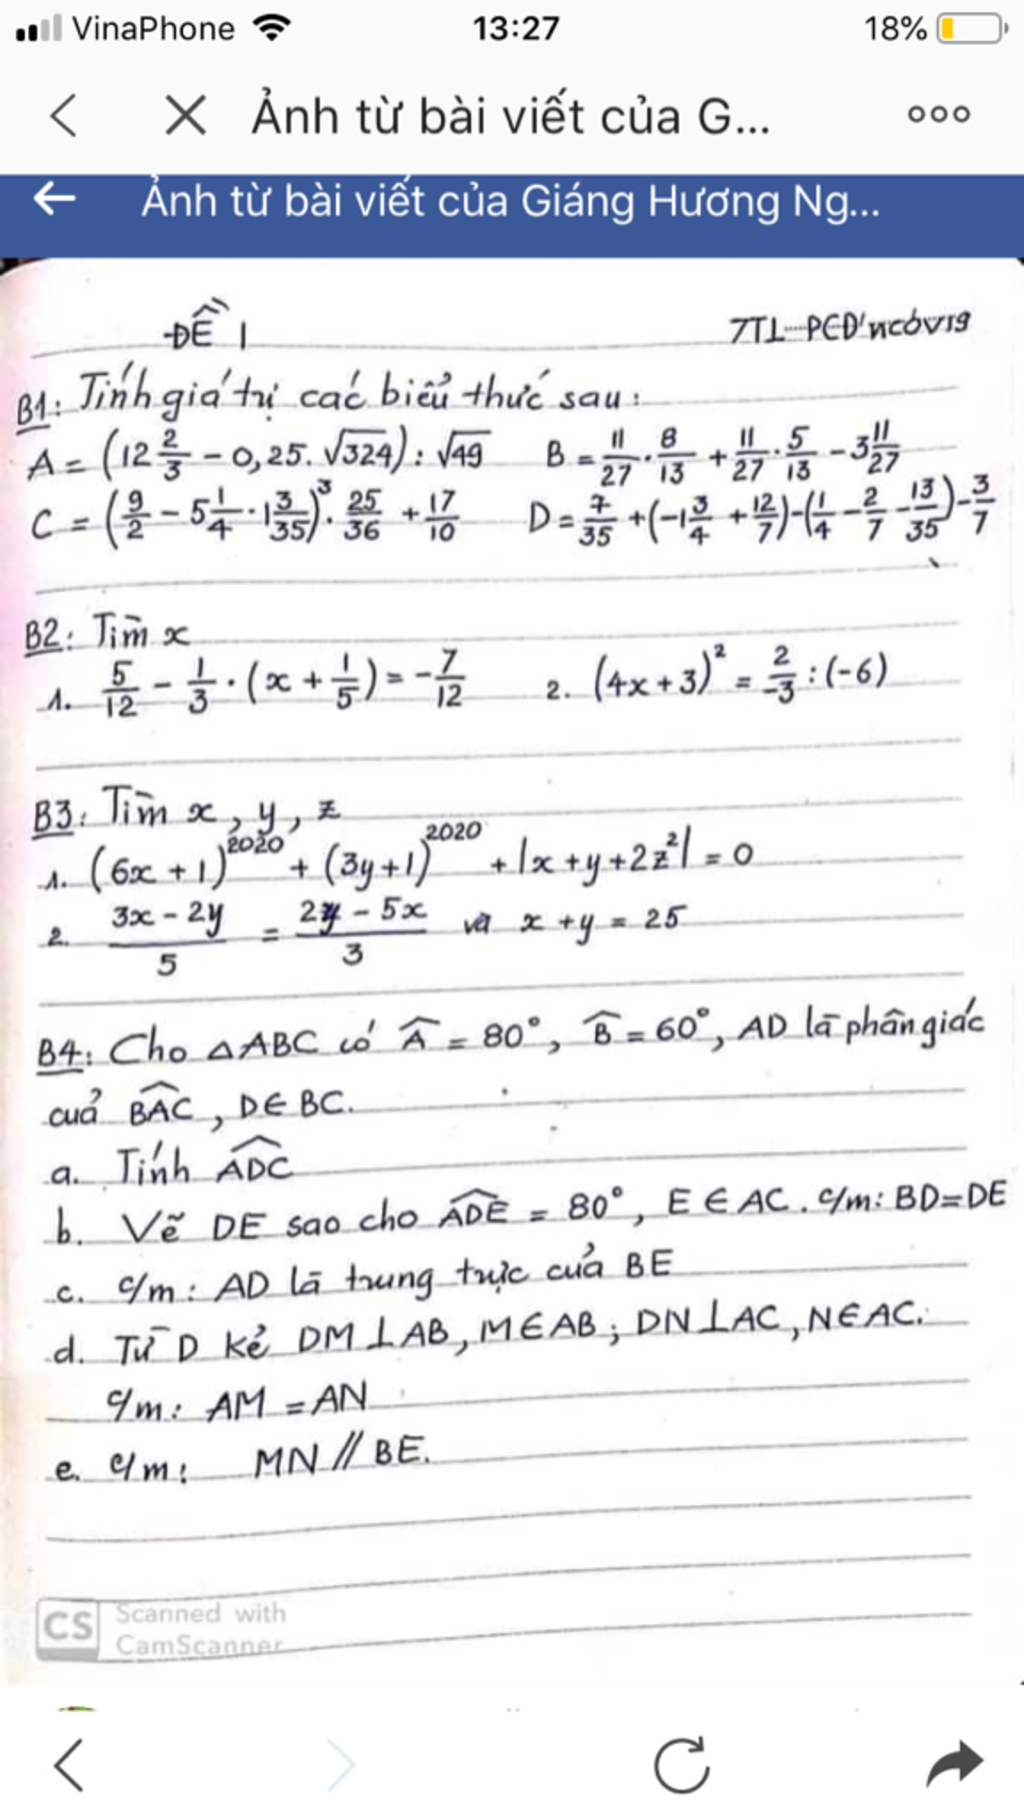 VinaPhone 13:27 18%
Ảnh từ bài viết của G...
Ảnh từ bài viết của Giáng Hương Ng...
ĐỀ 1 7T1-PCD'ncóv19
B1: Tính giá trị các biểu thức sau:
A = (12 2/3 - 0,25. √324) : √49 B = 11/27 . 8/13 + 11/27 . 5/13 - 3 11/27
C = (9/2 - 5 1/4 . 1 3/35)³ . 25/36 + 17/10 D = 7/35 + (-1 3/4 + 12/7) - (1/4 - 2/7 - 13/35) - 3/7
B2: Tìm x
1. 5/12 - 1/3 . (x + 1/5) = -7/12 2. (4x+3)² = 2/-3 : (-6)
B3: Tìm x, y, z
1. (6x+1)²⁰²⁰ + (3y+1)²⁰²⁰ + |x+y+2z²| = 0
2. 3x - 2y / 5 = 2y - 5x / 3 và x + y = 25
B4: Cho △ABC có Â = 80°, B̂ = 60°, AD là phân giác
của BAC, D∈ BC.
a. Tính ADC
b. Vẽ DE sao cho ADE = 80°, E ∈ AC. c/m: BD=DE
c. c/m: AD là trung trực của BE
d. Từ D kẻ DM⊥AB, M∈AB; DN⊥AC, N∈AC.
c/m: AM = AN
e. c/m: MN // BE.
CS Scanned with
CamScanner